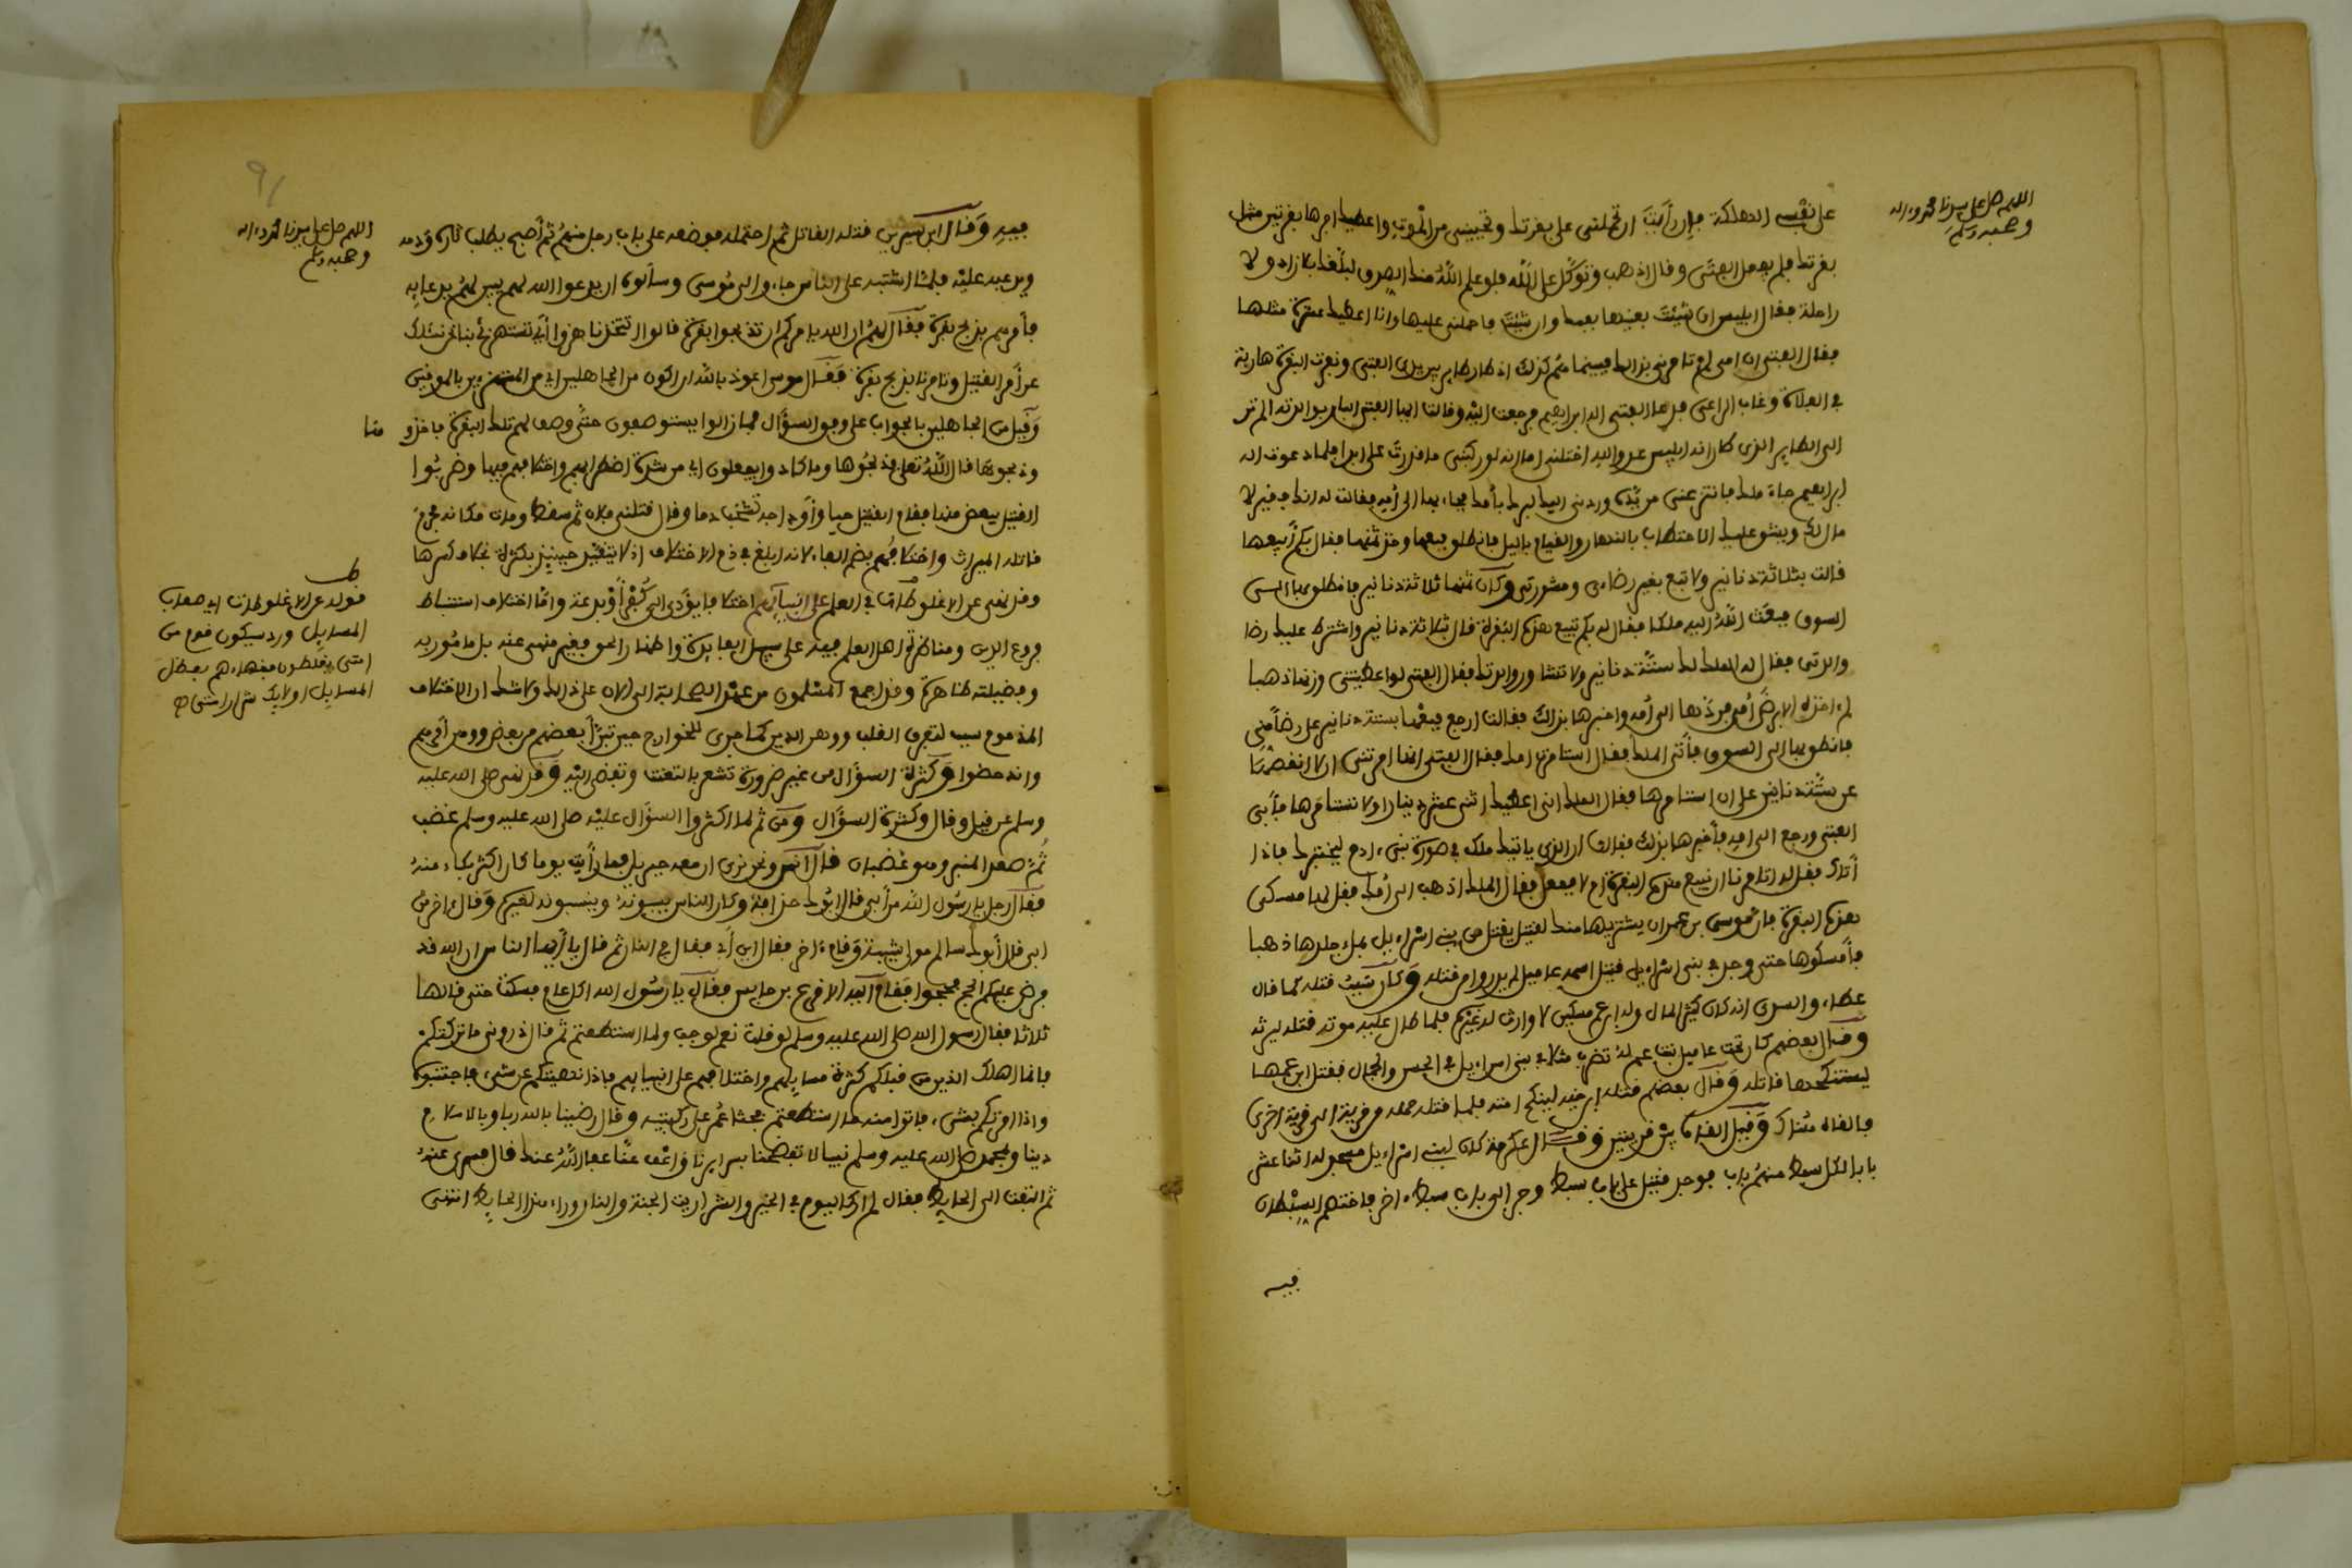 اللهم صل على سيدنا محمد وءاله
وصحبه وسلم
على نفسي الهلكة فإن رأيت ان تحملني على بقرتك وتنجيني من الموت واعطيك اجرها بقرتين مثل
بقرتك فلم يفعل الفتى وقال اذهب وتوكل على الله فلو علم الله منك الصدق لبلغك بلا زاد ولا
راحلة فقال ابليس ان شئت بعنيها بحكمك وان شئت فاحملني عليها وانا اعطيك عشرة مثلها
فقال الفتى ان امي لم تامرني بذلك فبينما هم كذلك اذ طار طاير بين يدي الفتى ونفرت البقرة هاربة
في الفلاة وغاب الراعي فدعا الفتى اله ابراهيم فرجعت اليه وقالت ايها الفتى البار بوالدته الم تر
الى الطاير الذي كان انه ابليس عدو الله اختلسني اما انه لو ركبني ما قدرت علي ابدا فلما دعوت اله
ابراهيم جاء ملك فانتزعني من يده وردني اليك لبرك بأمك فجاء بها الى أمه فقالت له انك فقير لا
مال لك ويشق عليك الاحتطاب بالنهار والقيام بالليل فانطلق فبعها وخذ ثمنها فقال بكم أبيعها
قالت بثلاثة دنانير ولا تبع بغير رضاءي ومشورتي وكان ثمنها ثلاثة دنانير فانطلق بها الى
السوق فبعث الله اليه ملكا فقال له بكم تبيع هذه البقرة قال بثلاثة دنانير واشترط عليك رضا
والدتي فقال له الملك لك ستة دنانير ولا تشاور والدتك فقال الفتى لو اعطيتني وزنها ذهبا
لم ءاخذه الا برضى أمي فردها الى أمه واخبرها بذلك فقالت ارجع فبعها بستة دنانير على رضا مني
فانطلق بها الى السوق فأتى الملك فقال استامرت امك فقال الفتى انها امرتني ان لا انقصها
عن ستة دنانير على ان استامرها فقال الملك اني اعطيك اثني عشر دينارا ولا تستامرها فأبى
الفتى ورجع الى امه فأخبرها بذلك فقالت ان الذي ياتيك ملك في صورة بني ءادم ليختبرك فاذا
أتاك فقل له اتامرنا ان نبيع هذه البقرة ام لا ففعل فقال الملك اذهب الى أمك فقل لها امسكي
هذه البقرة فان موسى بن عمران يشتريها منك لقتيل يقتل من بني اسراءيل بملء جلدها ذهبا
فأمسكوها حتى وجد في بني اسراءيل قتيل اسمه عاميل لم يدروا من قتله وكان سبب قتله كما قال
عطاء والسدي انه كان كثير المال وله ابن عم مسكين لا وارث له غيره فلما طال عليه موته قتله ليرثه
وقال بعضهم كان تحت عاميل بنت عم له تضرب مثلا في بني اسراءيل في الحسن والجمال فقتل ابن عمها
لينكحها قاتله وقال بعضهم قتله ابن اخيه لينكح ابنته فلما قتله حمله من قرية الى قرية اخرى
فالقاه هناك وقيل القاه بين قريتين وقال عكرمة كان لبني اسراءيل مسجد له اثنا عشر
بابا لكل سبط منهم باب فوجد قتيل على باب سبط وجر الى باب سبط ءاخر فاختصم السبطان
فيه
اللهم صل على سيدنا محمد وءاله
وصحبه وسلم
فيه وقال ابن سيرين قتله القاتل ثم احتمله فوضعه على باب رجل منهم ثم أصبح يطلب ثاره ودمه
ويدعيه عليه فلما اشتبه على الناس جاءوا الى موسى وسألوه ان يدعوا الله لهم يبين لهم بدعايه
فأمرهم بذبح بقرة فقال لهم ان الله يامركم ان تذبحوا بقرة قالوا اتتخذنا هزوا أي تستهزئ بنا نحن نسئلك
عن أمر القتيل وتامرنا بذبح بقرة فقال موسى اعوذ بالله ان اكون من الجاهلين اي من المستهزءين بالمومنين
وقيل من الجاهلين بالجواب على وفق السؤال فما زالوا يستوصفون حتى وصف لهم تلك البقرة فاخذو
ها
وذبحوها قال الله تعلى فذبحوها وما كادوا يفعلون اي من شدة اضطرابهم واختلافهم فيها وضربوا
القتيل ببعض منها فقام القتيل حيا وأوداجه تشخب دما وقال قتلني فلان ثم سقط ومات مكانه فحرم
قاتله الميراث واختلافهم بضم الفاء لانه ابلغ في ذم الاختلاف اذ لا يتقيد حينيذ بكثرة بخلاف كسرها
وقد نهى عن الاغلوطات في العلم على انبيآيهم اختلافا يؤدي الى كفر أو بدعة وأما اختلاف استنباط
فروع الدين ومناظرة اهل العلم فيه على سبيل الفايدة واظهار الحق فغير منهي عنه بل مامور به
وفضيلته ظاهرة وقد اجمع المسلمون من عصر الصحابة الى الان على ذلك ولا شك ان الاختلاف
المذموم سبب لتفرق القلوب ووهن الدين كما جرى للخوارج حين تبرأ بعضهم من بعض
كثرة السؤال من غير ضرورة تشعر بالتعنت وتفضي اليه وقد نهى صلى الله عليه
وسلم عن قيل وقال وكثرة السؤال ومن ثم لما اكثروا السؤال عليه صلى الله عليه وسلم غضب
ثم صعد المنبر وهو غضبان قال انس ونحن نرى ان معه جبريل فما رأيت يوما كان اكثر بكاء منه
فقال رجل يا رسول الله من أبي قال ابوك حذافة وكان الناس يسبونه وينسبونه لغيره وقال ءاخر من
ابي قال أبوك سالم مولى شيبة وقام ءاخر فقال اين أبي فقال في النار ثم قال يا أيها الناس ان الله قد
فرض عليكم الحج فحجوا فقام اليه الاقرع بن حابس فقال يا رسول الله اكل عام فسكت حتى قالها
ثلاثا فقال رسول الله صلى الله عليه وسلم لو قلت نعم لوجبت ولما استطعتم ثم قال ذروني ما تركتكم
فانما اهلك الذين من قبلكم كثرة مسايلهم واختلافهم على انبيايهم فاذا نهيتكم عن شيء فاجتنبوه
واذا امرتكم بشيء فاتوا منه ما استطعتم فجثا عمر على ركبتيه وقال رضينا بالله ربا وبالاسلام
دينا وبمحمد صلى الله عليه وسلم نبيا لا تفضحنا بسرايرنا واعف عنا عفا الله عنك قال فسري عنه
ثم التفت الى الحايط فقال لم ار كاليوم في الخير والشر اريت الجنة والنار وراء هذا الحايط انتهى
ط
قوله عن الاغلوطات اي صعاب
المسايل ورد سيكون قوم من
امتي يغلطون فقهاءهم بعضل
المسايل اولايك شرار امتي